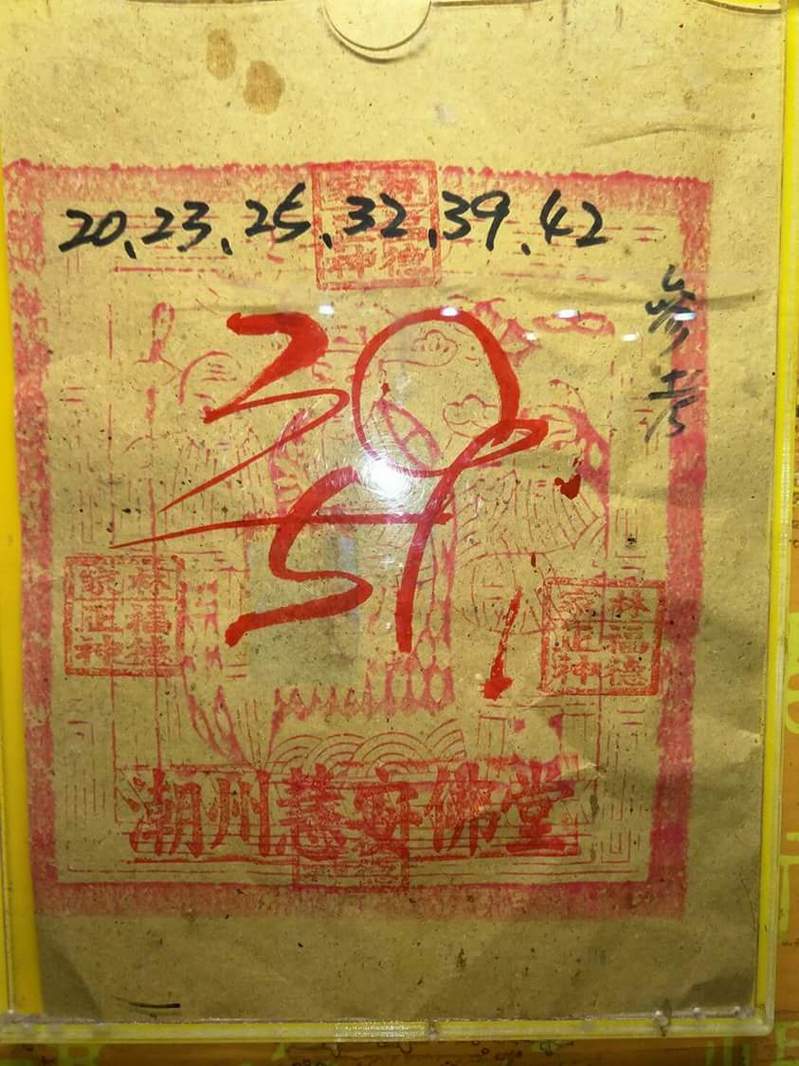 20、23、25、32、39、42
參考
林福德
家正神
林福德
家正神
林福德
家正神
潮州慧安佛堂